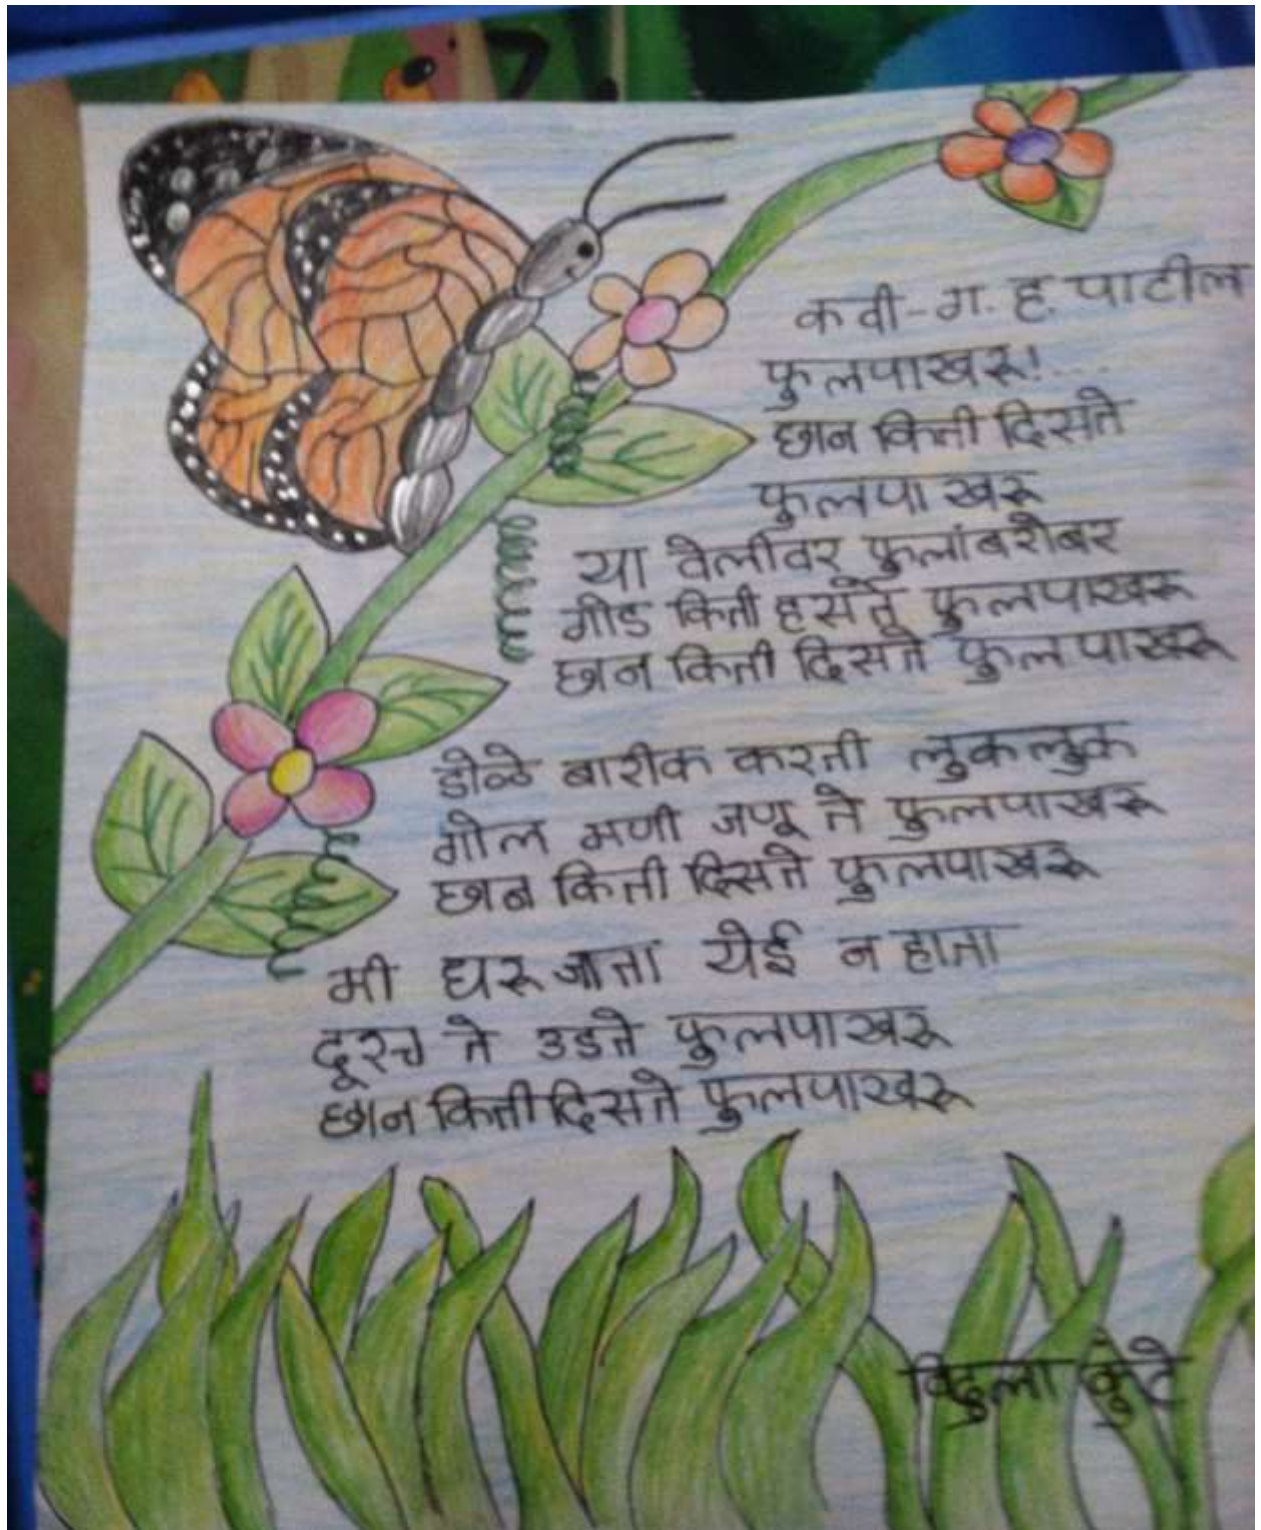 कवी-ग. ह. पाटील
फुलपाखरू!....
छान किती दिसते
फुलपाखरू
या वेलीवर फुलांबरोबर
गोड किती हसते फुलपाखरू
छान किती दिसते फुलपाखरू
डोळे बारीक करती लुकलुक
गोल मणी जणू ते फुलपाखरू
छान किती दिसते फुलपाखरू
मी धरू जाता येई न हाता
दूरच ते उडते फुलपाखरू
छान किती दिसते फुलपाखरू
विदुला कुंटे